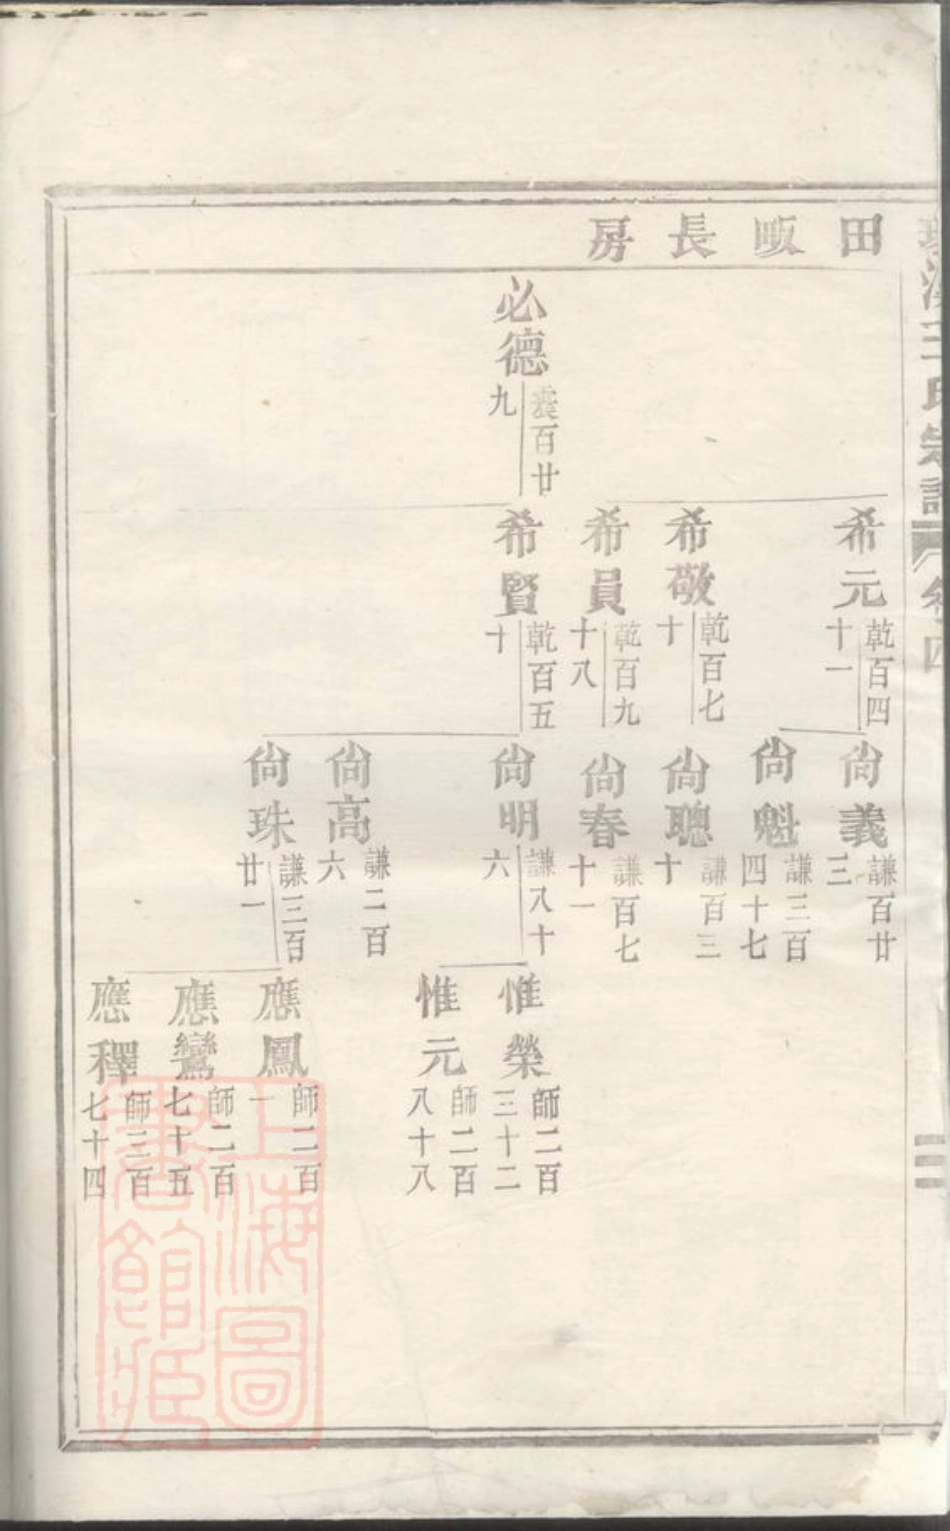 田畈長房
必德
百廿九
希元
乾百四十一
希敬
乾百七十
希員
乾百九十八
希賢
乾百五十
尙義
謙百廿三
尙魁
謙三百四十七
尙聰
謙百三十
尙春
謙百七十一
尙明
謙八十六
尙高
謙二百六
尙珠
謙三百廿一
惟榮
師二百三十二
惟元
師二百八十八
應鳳
師二百一
應鸞
師二百七十五
應釋
師三百七十四
王氏宗譜
卷四
上海圖書館藏